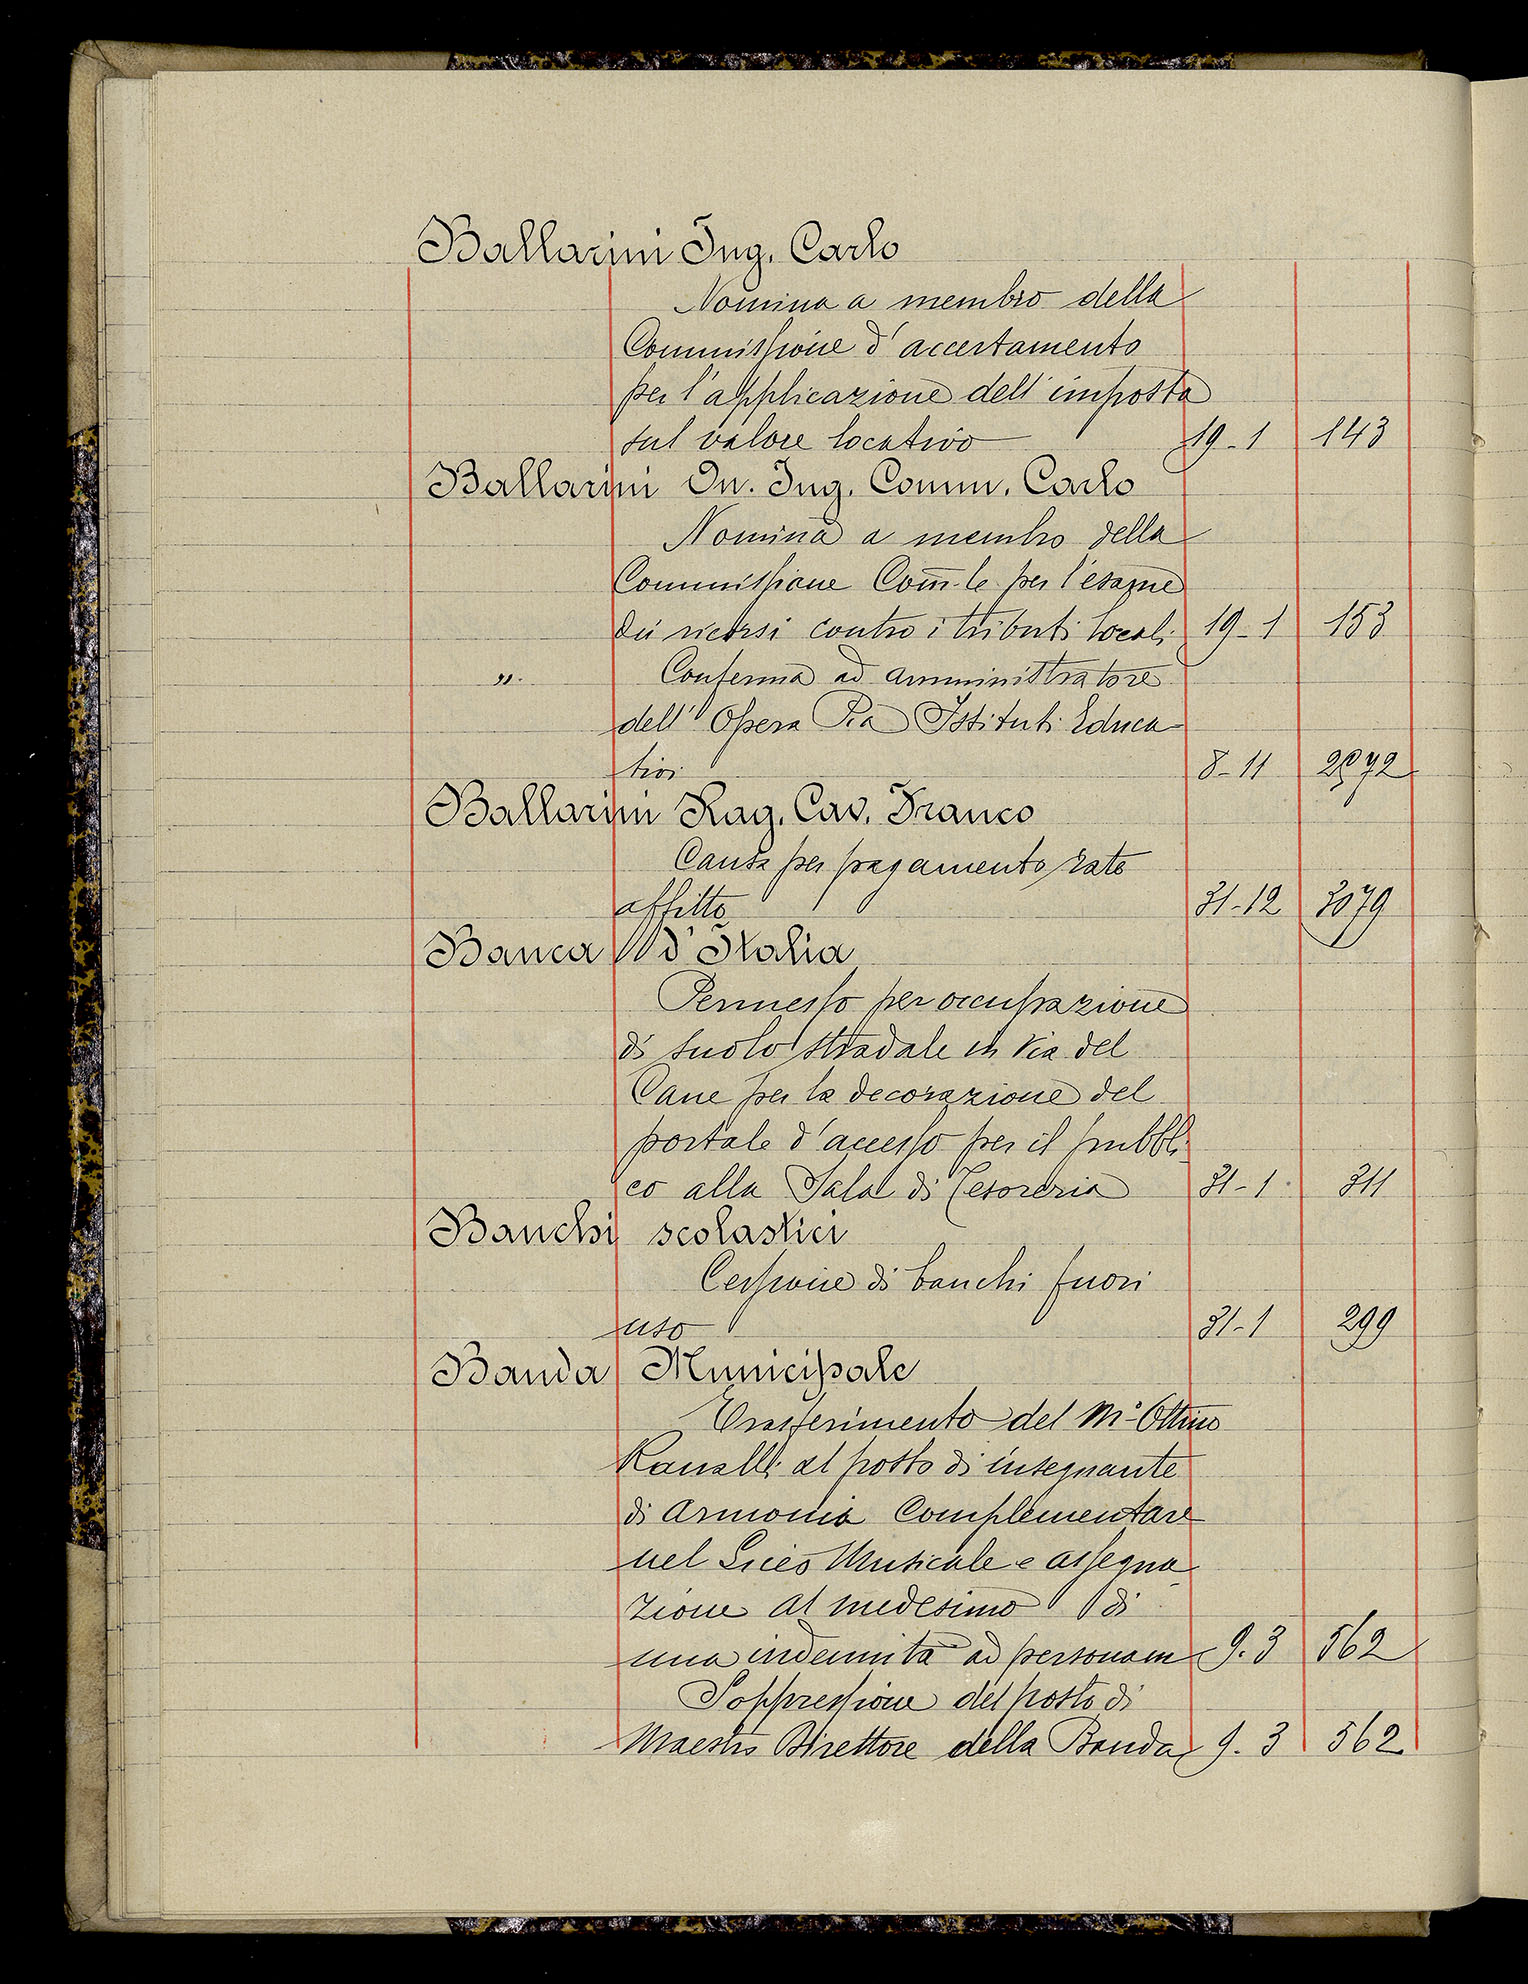 Ballarini Ing. Carlo
Nomina a membro della
Commissione d'accertamento
per l'applicazione dell'imposta
sul valore locativo 19-1 143
Ballarini On. Ing. Comm. Carlo
Nomina a membro della
Commissione Com-le per l'esame
dei ricorsi contro i tributi locali 19-1 153
". Conferma ad amministratore
dell'Opera Pia Istituti Educa
tivi 8-11
Ballarini Rag. Cav. Franco
Causa per pagamento rate
affitto 31-12 3079
Banca d'Italia
Permesso per occupazione
di suolo stradale in Via del
Cane per la decorazione del
portale d'accesso per il pubbli
co alla Sala di Tesoreria 31-1 311
Banchi scolastici
Cessione di banchi fuori
uso 31-1 299
Banda Municipale
Trasferimento del M° Ottino
Ranalli al posto di insegnante
di armonia complementare
nel Liceo Musicale e assegna
zione al medesimo di
una indennità ad personam 9.3 562
Soppressione del posto di
Maestro Direttore della Banda 9.3 562